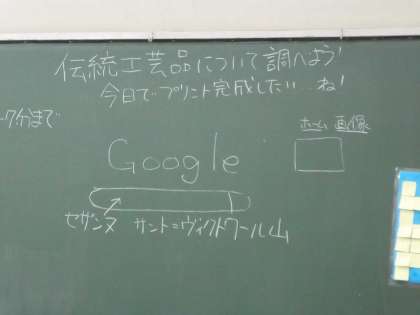 伝統工芸品について調べよう!
今日でプリント完成したい…ね!
7分まで
ホーム 画像
Google
セザンヌ サント=ヴィクトワール山